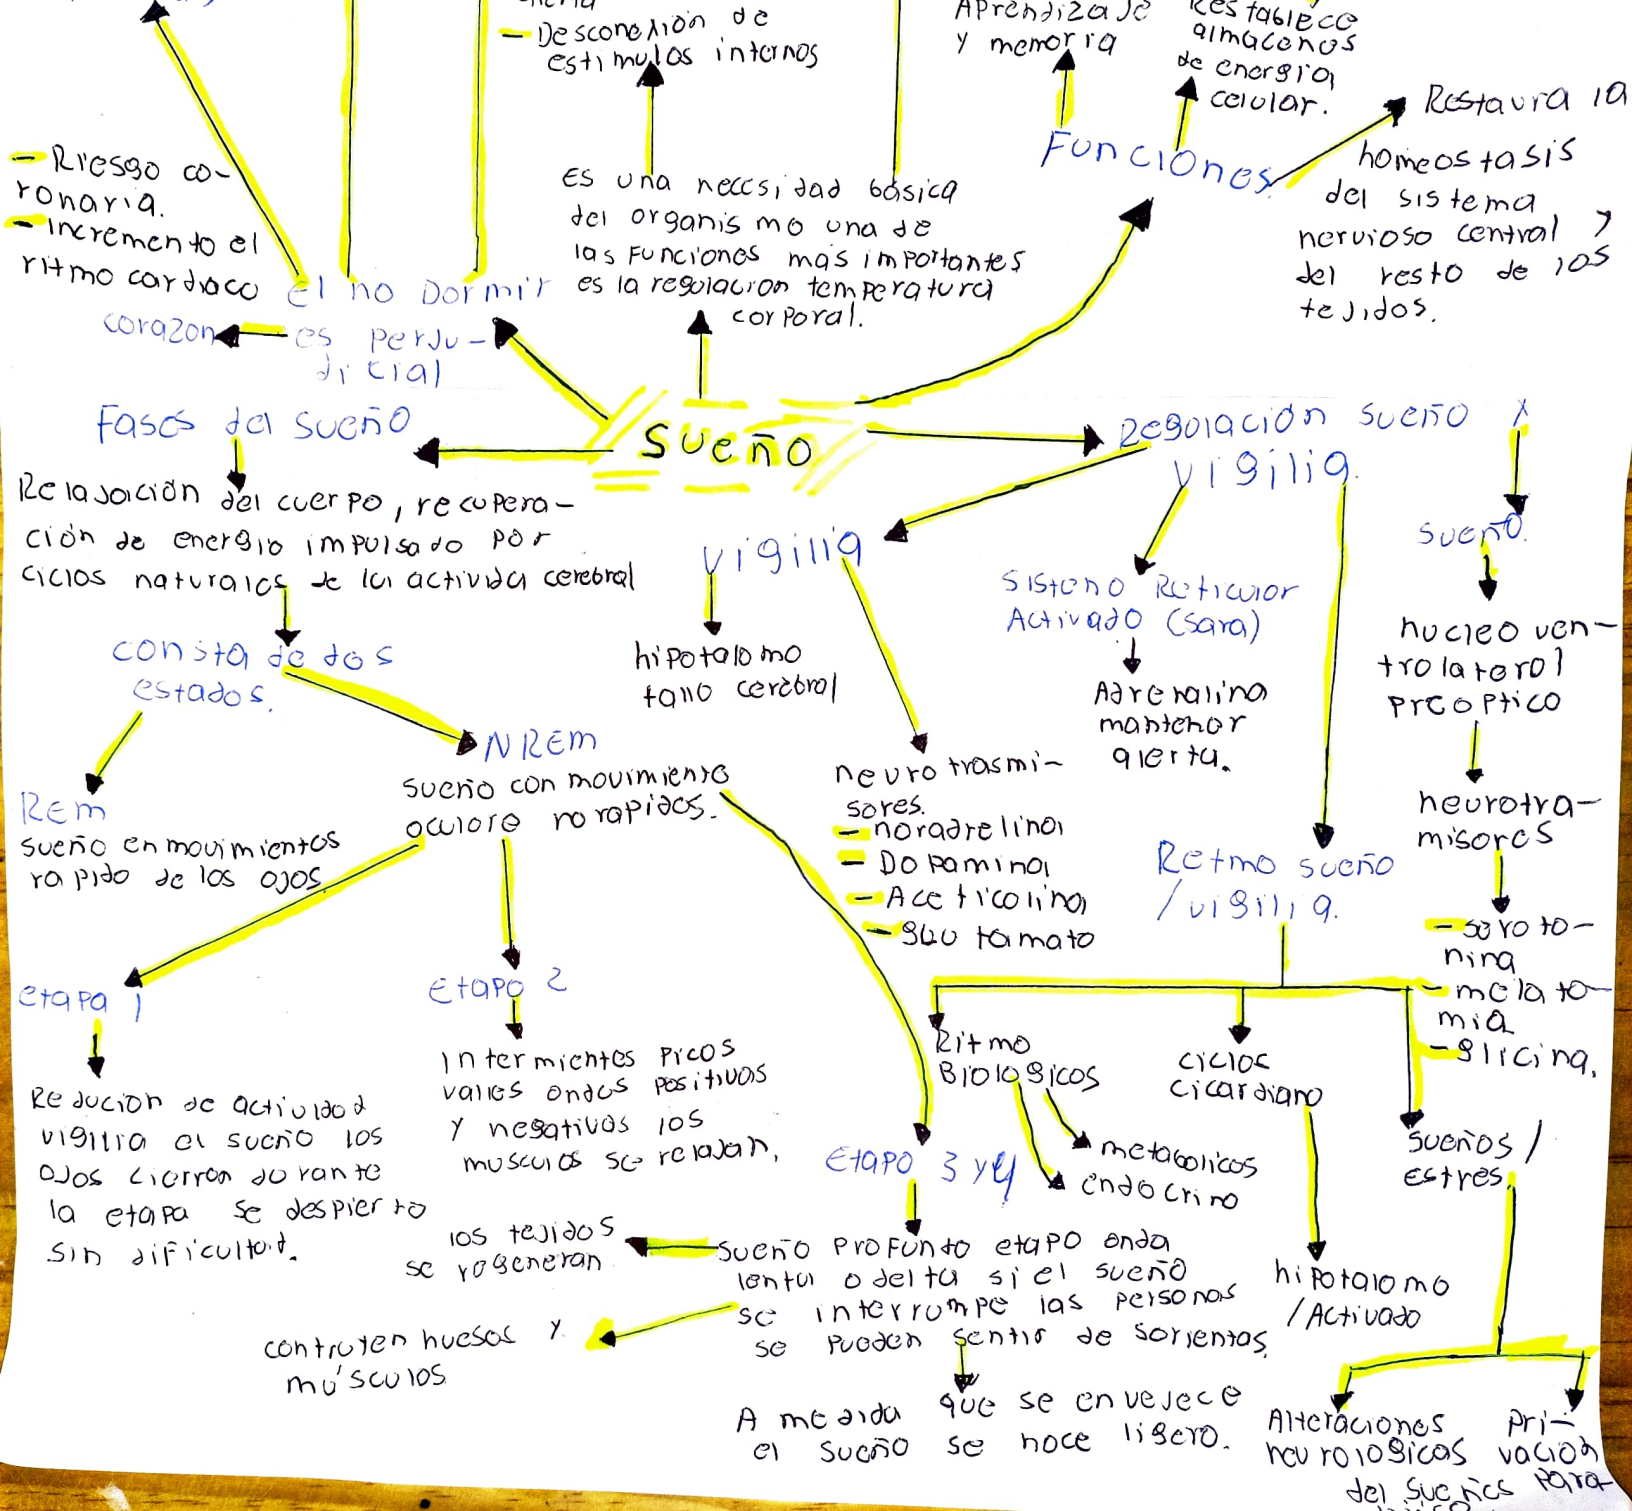 - Desconexión de
estimulos internos
Aprendizaje
y memoria
Restablece
almacenos
de energia
celular.
Funciones
Restaura la
homeostasis
del sistema
nervioso central y
del resto de los
tejidos.
- Riesgo co-
ronaria.
- Incremento el
ritmo cardiaco
El no Dormir
es perju-
dicial
corazon
Es una necesidad básica
del organismo una de
las funciones mas importantes
es la regulacion temperatura
corporal.
Sueño
Fases del sueño
Relajación del cuerpo, recupera-
ción de energio impulsado por
ciclos naturales de la activida cerebral
consta de dos
estados.
REM
sueño en movimientos
rapido de los ojos
NREM
sueño con movimiento
oculore no rapidos.
etapa 1
Reducion de actividad
vigilia el sueño los
ojos cierran durante
la etapa se despierto
sin dificultad.
Etapo 2
Intermientes picos
valles ondas positivas
y negativos los
musculos se relajan,
Etapo 3 y 4
sueño profunto etapo onda
lenta o delta si el sueño
se interrumpe las personas
se pueden sentir de sorientas.
los tejidos
se regeneran
contruyen huesos y
músculos
A medida que se envejece
el sueño se hace ligero.
Regulación sueño y
vigilia.
vigilia
hipotalomo
tallo cerebral
neurotrasmi-
sores.
- noradrelina
- Dopamina
- Aceticolina
- glutamato
Sisteno Reticulor
Activado (Sara)
Adrenalina
mantener
alerta.
Retmo sueño
/vigilia.
Ritmo
Biologicos
metabolicos
endocrino
ciclos
cicardiano
hipotalomo
/Activado
sueños/
estres.
Alteraciones
neurologicas
pri-
vacion
del sueños para
sueño.
nucleo ven-
trolaterol
preoptico
neurotra-
misores
- seroto-
nina
- melato-
mia
- glicina.